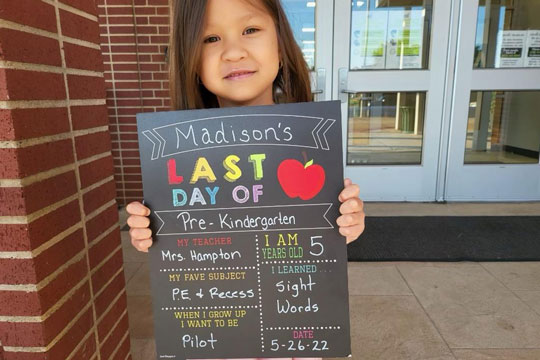 Madison's
LAST
DAY OF
Pre-Kindergarten
MY TEACHER
Mrs. Hampton
MY FAVE SUBJECT
P.E. & Recess
WHEN I GROW UP
I WANT TO BE
Pilot
I AM
YEARS OLD 5
I LEARNED...
Sight
Words
DATE
5-26-22